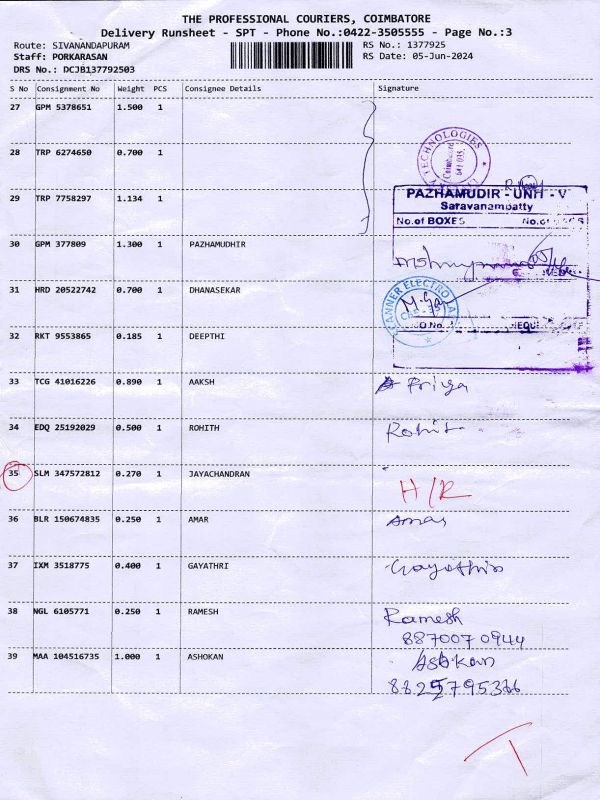 THE PROFESSIONAL COURIERS, COIMBATORE
Delivery Runsheet - SPT - Phone No.:0422-3505555 - Page No.:3
Route: SIVANANDAPURAM RS No.: 1377925
Staff: PORKARASAN RS Date: 05-Jun-2024
DRS No.: DCJB137792503
S No Consignment No Weight PCS Consignee Details Signature
27 GPM 5378651 1.500 1
28 TRP 6274650 0.700 1
TECHNOLOGIES
Coimbatore
641 035.
29 TRP 7758297 1.134 1
PAZHAMUDIR - UNIT - V
Saravanampatty
No.of BOXES
30 GPM 377809 1.300 1 PAZHAMUDHIR
31 HRD 20522742 0.700 1 DHANASEKAR
32 RKT 9553865 0.185 1 DEEPTHI
33 TCG 41016226 0.890 1 AAKSH Priya
34 EDQ 25192029 0.500 1 ROHITH Rohit
35 SLM 347572812 0.270 1 JAYACHANDRAN H/R
36 BLR 150674835 0.250 1 AMAR Amar
37 IXM 3518775 0.400 1 GAYATHRI
38 NGL 6105771 0.250 1 RAMESH Ramesh
887007 0944
39 MAA 104516735 1.000 1 ASHOKAN Ashokan